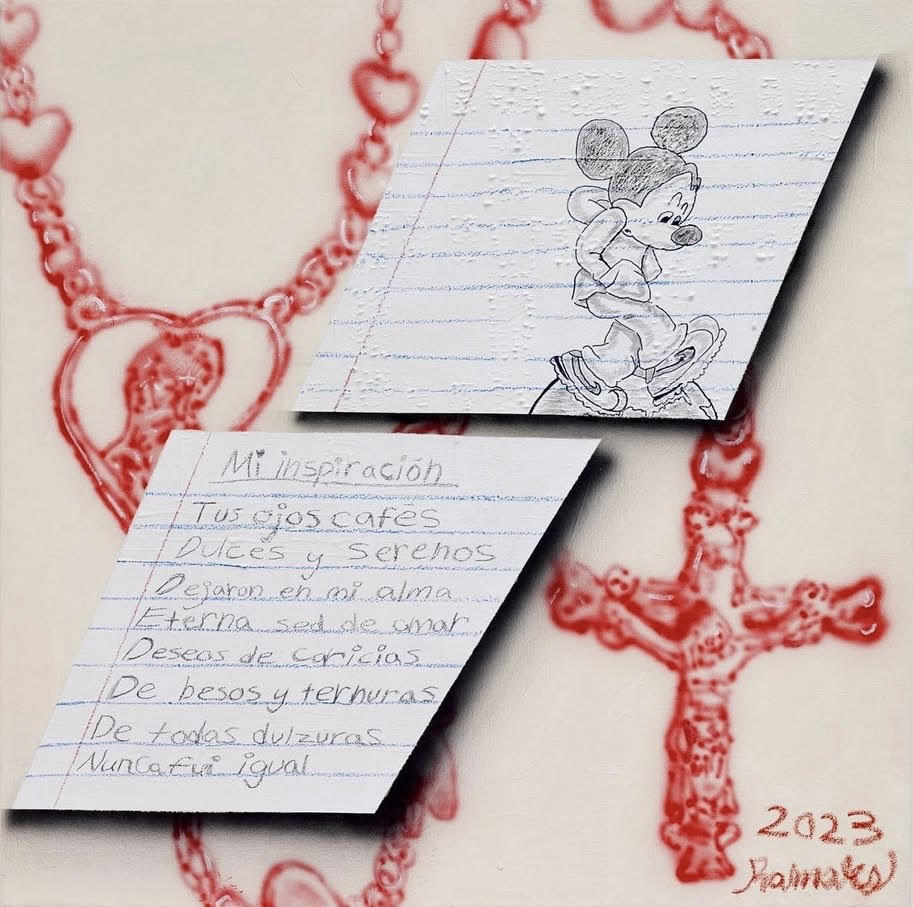 Mi inspiración
Tus ojos cafés
Dulces y serenos
Dejaron en mi alma
Eterna sed de amar
Deseos de caricias
De besos y ternuras
De todas dulzuras
Nunca fui igual
2023